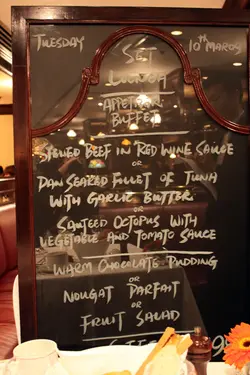 TUESDAY
10TH MAR09
SET
LUNCH
APPETISER
BUFFET
STEWED BEEF IN RED WINE SAUCE
OR
PAN SEARED FILLET OF TUNA
WITH GARLIC BUTTER
OR
SAUTEED OCTOPUS WITH
VEGETABLE AND TOMATO SAUCE
WARM CHOCOLATE PUDDING
OR
NOUGAT PARFAIT
OR
FRUIT SALAD